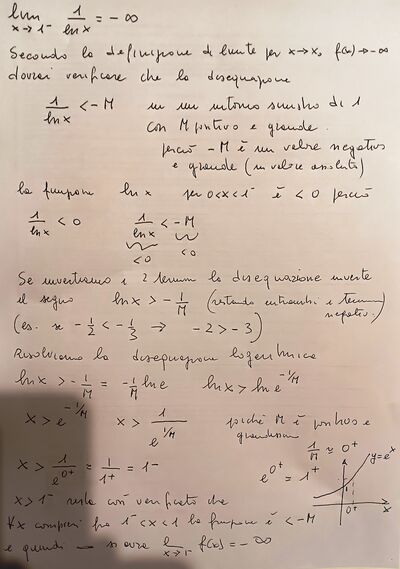 lim x→1⁻ 1/ln x = -∞
Secondo la definizione di limite per x→x₀ f(x)→-∞
dovrai verificare che la disequazione
1/ln x < -M in un intorno sinistro di 1
con M positivo e grande.
perciò -M è un valore negativo
e grande (in valore assoluto)
la funzione ln x per 0<x<1⁻ è < 0 perciò
1/ln x < 0 1/ln x < -M
<0 <0
Se invertiamo i 2 termini la disequazione inverte
il segno ln x > -1/M (restando entrambi i termini
negativi.)
(es. se -1/2 < -1/3 → -2 > -3)
Risolviamo la disequazione logaritmica
ln x > -1/M = -1/M ln e ln x > ln e^(-1/M)
x > e^(-1/M) x > 1/e^(1/M) poiché M è positivo e
grandissimo
1/M ≃ 0⁺
x > 1/e^(0⁺) = 1/1⁺ = 1⁻ e^(0⁺) = 1⁺
y=e^x
1
0⁺
x
x > 1⁻ resta così verificato che
∀x compresi fra 1⁻<x<1 la funzione è < -M
e quindi si avrà lim x→1⁻ f(x) = -∞